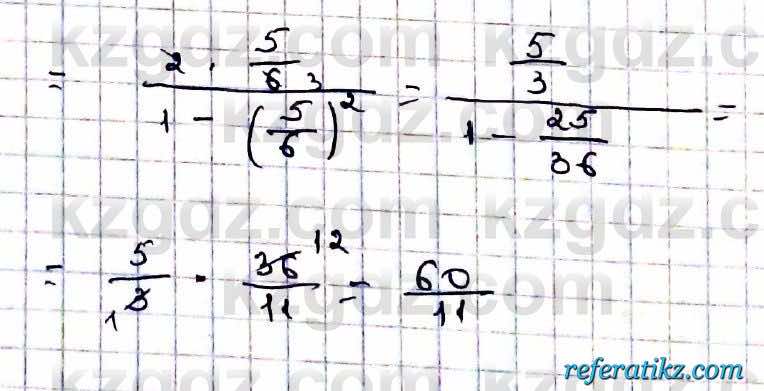 = \frac{2 \cdot \frac{5}{6} 3}{1 - \left(\frac{5}{6}\right)^2} = \frac{\frac{5}{3}}{1 - \frac{25}{36}} =
= \frac{5}{1 3} \cdot \frac{36 12}{11} = \frac{60}{11}
kzgdz.com
referatikz.com